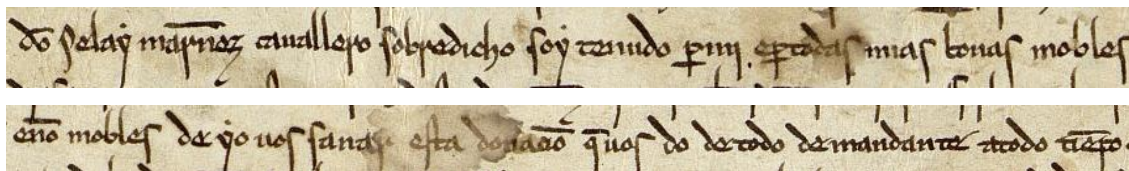 dõ Pelay martiñez cauallero sobredicho soy tenudo ꝑ mi. e ꝑ todas mias bonas mobles
enõ mobles de yo uos sanar esta donaciõ q̃uos do de todo demandante atodo tiẽpo.